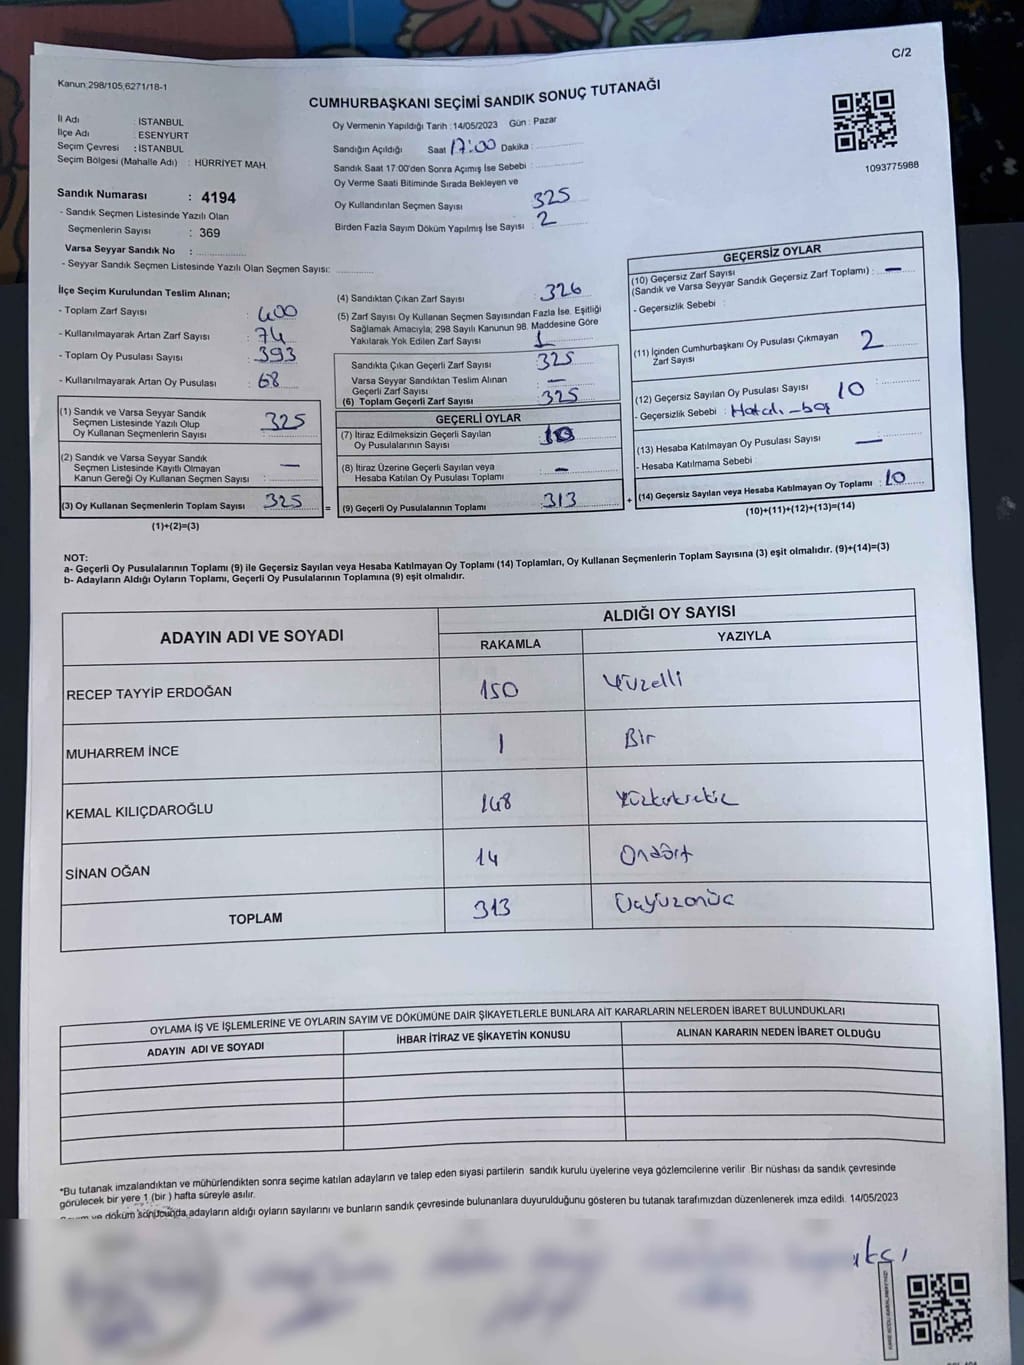 C/2
Kanun:298/105,6271/18-1
CUMHURBAŞKANI SEÇİMİ SANDIK SONUÇ TUTANAĞI
İl Adı : İSTANBUL
İlçe Adı : ESENYURT
Seçim Çevresi : İSTANBUL
Seçim Bölgesi (Mahalle Adı) : HÜRRİYET MAH.
Oy Vermenin Yapıldığı Tarih :14/05/2023 Gün : Pazar
Sandığın Açıldığı Saat 17:00 Dakika :
Sandık Saat 17:00'den Sonra Açımış İse Sebebi :
Oy Verme Saati Bitiminde Sırada Bekleyen ve
Oy Kullandırılan Seçmen Sayısı : 325
Birden Fazla Sayım Döküm Yapılmış İse Sayısı : 2
1093775988
Sandık Numarası : 4194
- Sandık Seçmen Listesinde Yazılı Olan
Seçmenlerin Sayısı : 369
Varsa Seyyar Sandık No :
- Seyyar Sandık Seçmen Listesinde Yazılı Olan Seçmen Sayısı:
İlçe Seçim Kurulundan Teslim Alınan;
- Toplam Zarf Sayısı : 400
- Kullanılmayarak Artan Zarf Sayısı : 74
- Toplam Oy Pusulası Sayısı : 393
- Kullanılmayarak Artan Oy Pusulası : 68
(1) Sandık ve Varsa Seyyar Sandık
Seçmen Listesinde Yazılı Olup
Oy Kullanan Seçmenlerin Sayısı : 325
(2) Sandık ve Varsa Seyyar Sandık
Seçmen Listesinde Kayıtlı Olmayan
Kanun Gereği Oy Kullanan Seçmen Sayısı : —
(3) Oy Kullanan Seçmenlerin Toplam Sayısı : 325
(1)+(2)=(3)
(4) Sandıktan Çıkan Zarf Sayısı : 326
(5) Zarf Sayısı Oy Kullanan Seçmen Sayısından Fazla İse, Eşitliği
Sağlamak Amacıyla; 298 Sayılı Kanunun 98. Maddesine Göre
Yakılarak Yok Edilen Zarf Sayısı : 1
Sandıkta Çıkan Geçerli Zarf Sayısı : 325
Varsa Seyyar Sandıktan Teslim Alınan
Geçerli Zarf Sayısı : —
(6) Toplam Geçerli Zarf Sayısı : 325
GEÇERLİ OYLAR
(7) İtiraz Edilmeksizin Geçerli Sayılan
Oy Pusulalarının Sayısı :
(8) İtiraz Üzerine Geçerli Sayılan veya
Hesaba Katılan Oy Pusulası Toplamı : —
= (9) Geçerli Oy Pusulalarının Toplamı : 313 +
GEÇERSİZ OYLAR
(10) Geçersiz Zarf Sayısı
(Sandık ve Varsa Seyyar Sandık Geçersiz Zarf Toplamı) : —
- Geçersizlik Sebebi :
(11) İçinden Cumhurbaşkanı Oy Pusulası Çıkmayan
Zarf Sayısı : 2
(12) Geçersiz Sayılan Oy Pusulası Sayısı : 10
- Geçersizlik Sebebi :
(13) Hesaba Katılmayan Oy Pusulası Sayısı : —
- Hesaba Katılmama Sebebi :
(14) Geçersiz Sayılan veya Hesaba Katılmayan Oy Toplamı : 10
(10)+(11)+(12)+(13)=(14)
NOT:
a- Geçerli Oy Pusulalarının Toplamı (9) ile Geçersiz Sayılan veya Hesaba Katılmayan Oy Toplamı (14) Toplamları, Oy Kullanan Seçmenlerin Toplam Sayısına (3) eşit olmalıdır. (9)+(14)=(3)
b- Adayların Aldığı Oyların Toplamı, Geçerli Oy Pusulalarının Toplamına (9) eşit olmalıdır.
ADAYIN ADI VE SOYADI
ALDIĞI OY SAYISI
RAKAMLA YAZIYLA
RECEP TAYYİP ERDOĞAN 150 Yüzelli
MUHARREM İNCE 1 Bir
KEMAL KILIÇDAROĞLU 148 Yüzkırksekiz
SİNAN OĞAN 14 Ondört
TOPLAM 313 Üçyüzonüç
OYLAMA İŞ VE İŞLEMLERİNE VE OYLARIN SAYIM VE DÖKÜMÜNE DAİR ŞİKAYETLERLE BUNLARA AİT KARARLARIN NELERDEN İBARET BULUNDUKLARI
ADAYIN ADI VE SOYADI İHBAR İTİRAZ VE ŞİKAYETİN KONUSU ALINAN KARARIN NEDEN İBARET OLDUĞU
*Bu tutanak imzalandıktan ve mühürlendikten sonra seçime katılan adayların ve talep eden siyasi partilerin sandık kurulu üyelerine veya gözlemcilerine verilir. Bir nüshası da sandık çevresinde
görülecek bir yere 1 (bir ) hafta süreyle asılır.
ve döküm sonucunda adayların aldığı oyların sayılarını ve bunların sandık çevresinde bulunanlara duyurulduğunu gösteren bu tutanak tarafımızdan düzenlenerek imza edildi. 14/05/2023